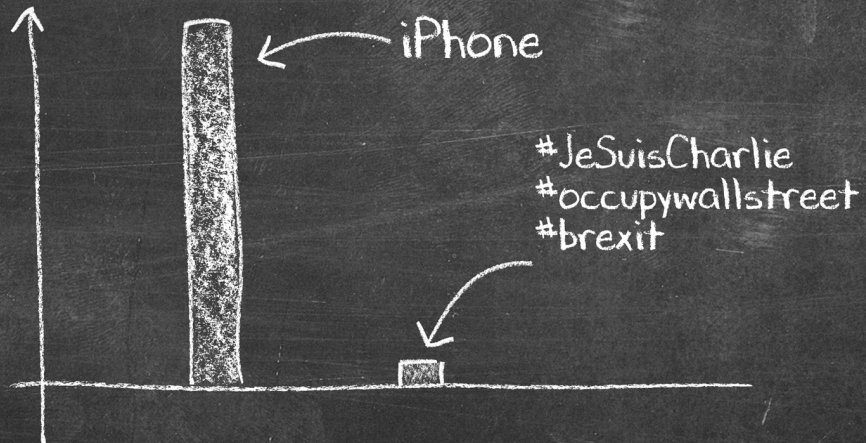 iPhone
#JeSuisCharlie
#occupywallstreet
#brexit